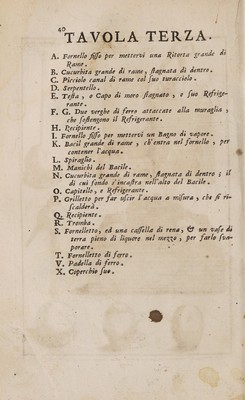 40
TAVOLA TERZA.
A. Fornello fisso per mettervi una Ritorta grande di
Rame.
B. Cucurbita grande di rame, stagnata di dentro.
C. Picciolo canal di rame col suo turacciolo.
D. Serpentello.
E. Testa, o Capo di moro stagnato, e suo Refrige-
rante.
F. G. Due verghe di ferro attaccate alla muraglia,
che sostengono il Refrigerante.
H. Recipiente.
I. Fornello fisso per mettervi un Bagno di vapore.
K. Bacil grande di rame, ch'entra nel fornello, per
contener l'acqua.
L. Spiraglio.
M. Manichi del Bacile.
N. Cucurbita grande di rame, stagnata di dentro; il
di cui fondo s'incastra nell'alto del Bacile.
O. Capitello, e Refrigerante.
P. Grilletto per far uscir l'acqua a misura, che si ri-
scalderà.
Q. Recipiente.
R. Tromba.
S. Fornelletto, ed una cassella di rena, & un vaso di
terra pieno di liquore nel mezzo, per farlo sva-
porare.
T. Fornelletto di ferro.
V. Padella di ferro.
X. Coperchio suo.